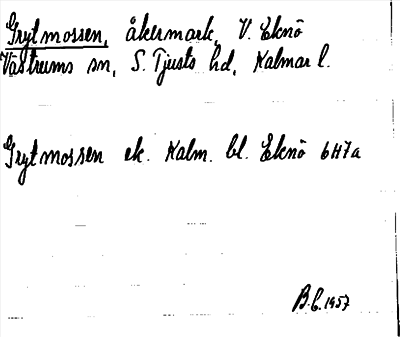 Grytmossen, åkermark, V. Eknö
Västrums sn, S. Tjusts hd, Kalmar l.
Grytmossen ek. Kalm. bl. Eknö 6H7a
B.C. 1957